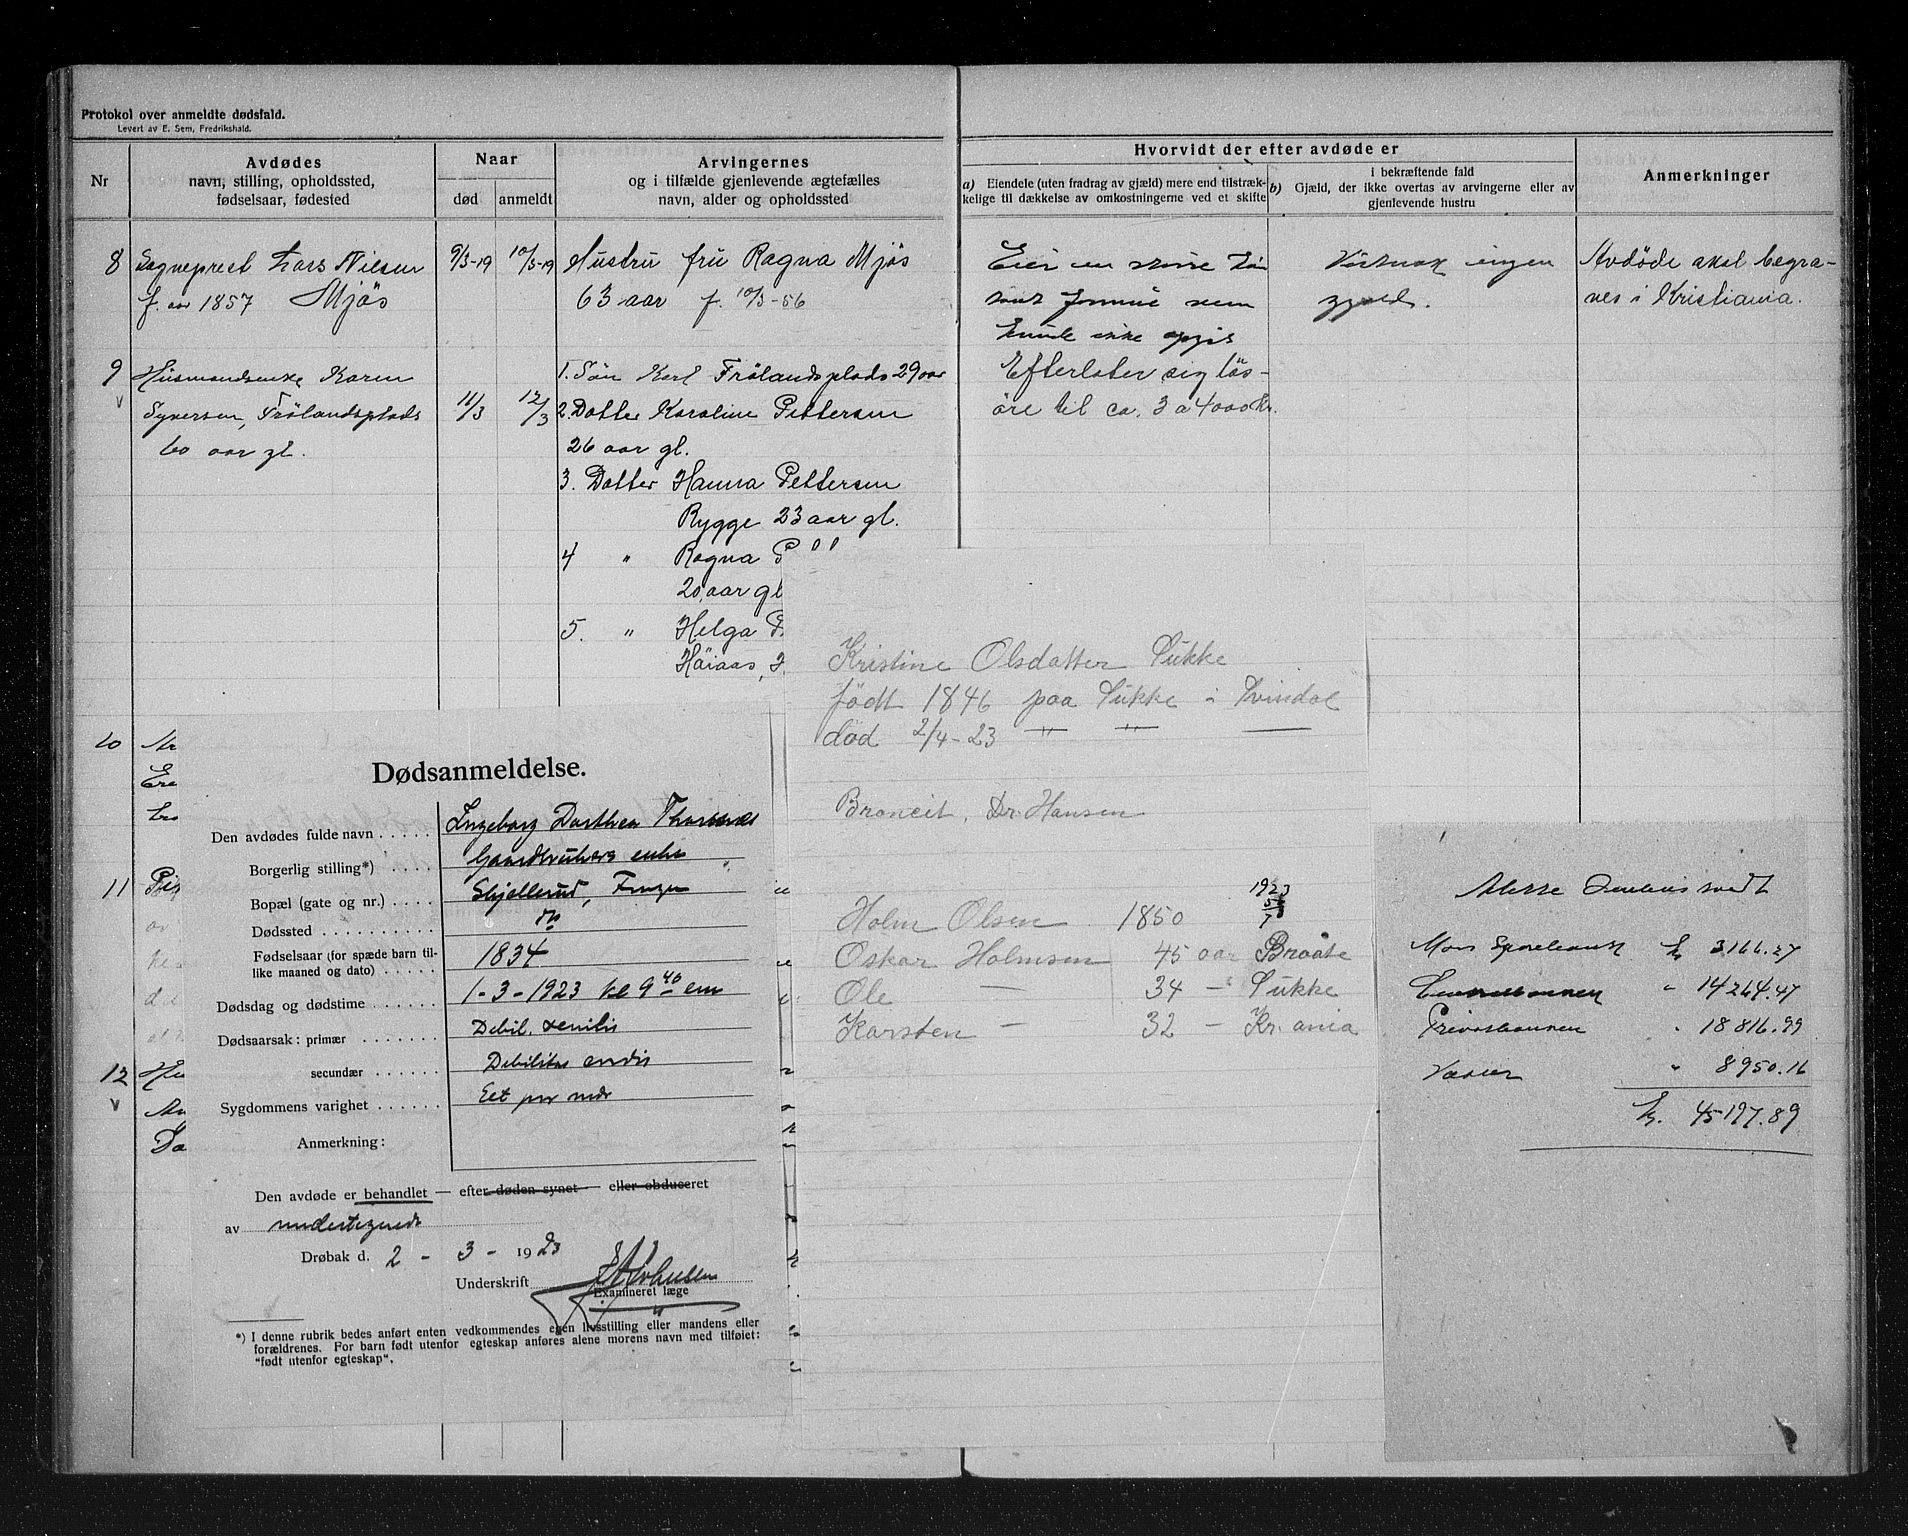 Protokol over anmeldte dødsfald.
Levert av E. Sem, Fredrikshald.
Nr
Avdødes
navn, stilling, opholdssted,
fødselsaar, fødested
Naar
død
anmeldt
Arvingernes
og i tilfælde gjenlevende ægtefælles
navn, alder og opholdssted
Hvorvidt der efter avdøde er
a) Eiendele (uten fradrag av gjæld) mere end tilstræk-
kelige til dækkelse av omkostningerne ved et skifte
i bekræftende fald
b) Gjæld, der ikke overtas av arvingerne eller av
gjenlevende hustru
Anmerkninger
8 Sogneprest Lars Nilsen
f. aar 1857 Mjøs
9/3-19 10/3-19
Hustru fru Ragna Mjøs
63 aar f. 10/3-56
Eier en større
som
kunde ikke opgis
ingen
gjæld.
Avdøde skal begra-
ves i Kristiania.
9 Husmandsenke Karen
Syversen, Frølandsplads
60 aar gl.
11/3 12/3
1. Søn Karl Frølandsplads 29 aar
2. Datter Karoline Pettersen
26 aar gl.
3. Datter Hanna Pettersen
Rygge 23 aar gl.
4 " Ragna P
20 aar gl
5. " Helga P
Häiaas,
Efterlater sig løs-
øre til ca. 3 a 4000 kr.
10
11
12
Dødsanmeldelse.
Den avdødes fulde navn Ingeborg Dorthea
Borgerlig stilling*) Gaardbrukers enke
Bopæl (gate og nr.) Skjellerud,
Dødssted do
Fødselsaar (for spæde barn til-
like maaned og dato) 1834
Dødsdag og dødstime 1-3-1923 kl 9 40 em
Dødsaarsak: primær Debil. senilis
secundær Debilitas cordis
Sygdommens varighet Eet par mdr
Anmerkning:
Den avdøde er behandlet — efter døden synet — eller obduceret
av undertegnede
Drøbak d. 2 - 3 - 1923
Underskrift
Examineret læge
*) I denne rubrik bedes anført enten vedkommendes egen livsstilling eller mandens eller
forældrenes. For barn født utenfor egteskap anføres alene morens navn med tilføiet:
"født utenfor egteskap".
Kristine Olsdatter Sukke
født 1846 paa Sukke i Svindal
død 2/4-23 — " — — " — ———
Broncit, Dr. Hansen
1923
5/7
Holm Olsen 1850
Oskar Holmsen 45 aar Braate
Ole — 34 — Sukke
Karsten — 32 — Kr.ania
Moss Sparebank kr 3166.27
" 14264.47
Privatbanken " 18816.99
" 8950.16
kr. 45197.89